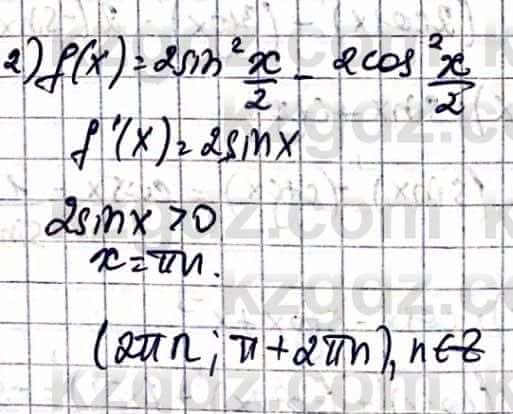 2) f(x) = 2sin² x/2 - 2cos² x/2
f'(x) = 2sinx
2sinx > 0
x = πn.
(2πn; π + 2πn), n∈Z
kzgdz.com